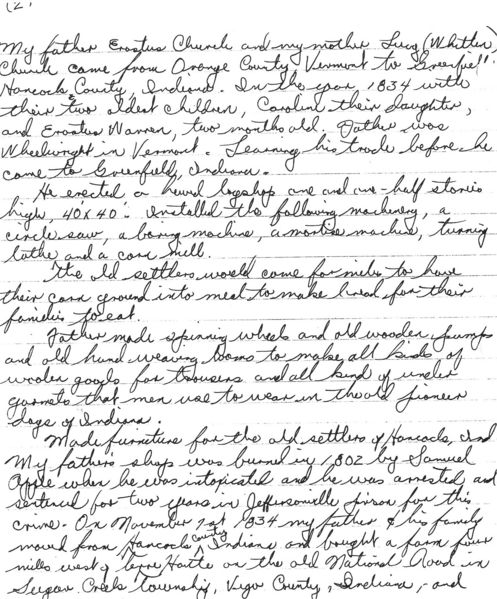 (2)
My father Erastus Church and my mother Lucy (Whittier)
Church came from Orange County Vermont to Greenfiel
Hancock County, Indiana. In the year 1834 with
their two oldest children, Caroline their daughter,
and Erastus Warren, two months old. Father was
Wheelwright in Vermont. Learning his trade before he
come to Greenfield, Indiana.
He erected a hewed logshop one and one-half stories
high, 40'x40'. Installed the following machinery, a
circle saw, a boring machine, a mortise machine, turning
lathe and a corn mill.
The old settlers would come for miles to have
their corn ground into meal to make bread for their
families to eat.
Father made spinning wheels and old wooden pumps
and old hand weaving looms to make all kinds of
woolen goods for trousers and all kind of under
garments that men use to wear in the old pioneer
days of Indiana.
Made furniture for the old settlers of Hancock, Ind
My father's shop was burned in 1802 by Samuel
when he was intoxicated and he was arrested and
sentenced for two years in Jeffersonville prison for this
crime. On November 1834 my father & his family
moved from Hancock County Indiana and bought a farm four
miles west of Terre Haute on the old National Road in
Sugar Creek township, Vigo County, Indiana, and